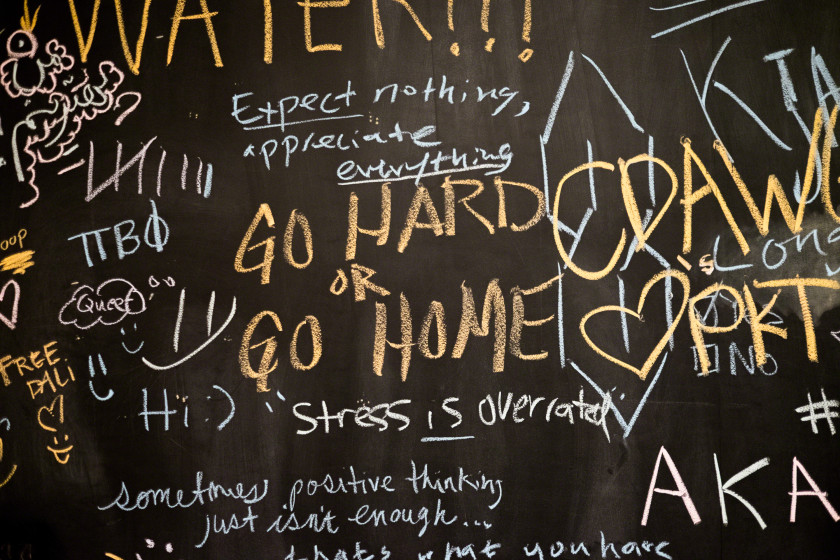 WATER!!!
Expect nothing,
appreciate
everything
KTA
ΠΒΦ
GO HARD
OR
GO HOME
CDAWW
Long
Queef
ΦΚΤ
UNO
FREE
DALI
Hi :)
Stress is overrated
#
sometimes positive thinking
just isn't enough...
that's what you have
AKA